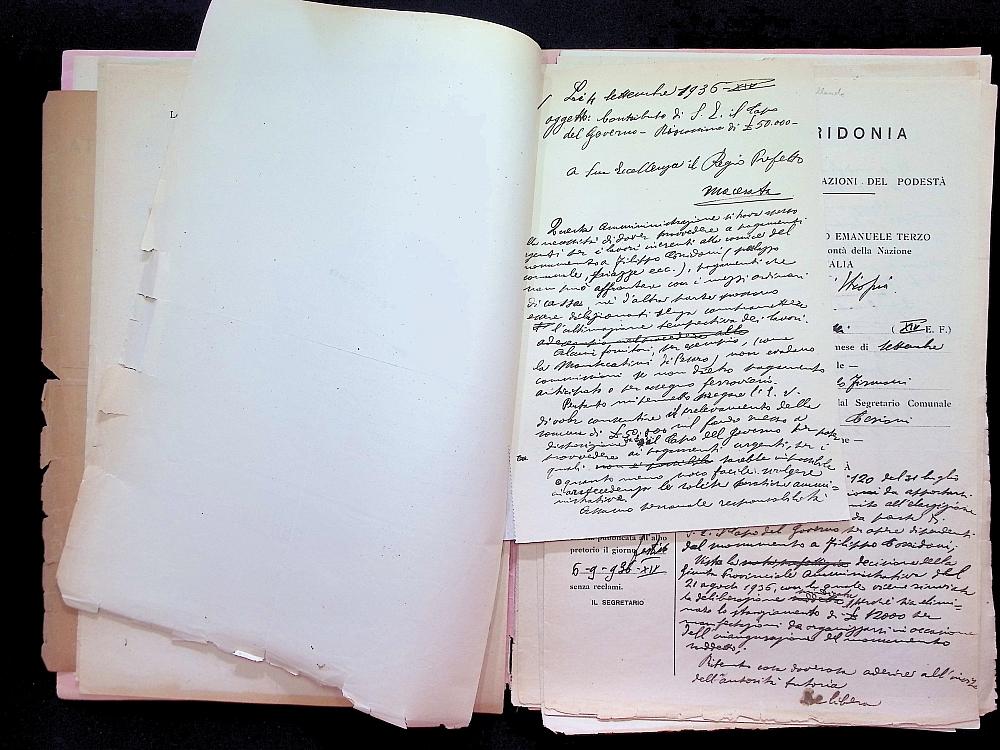 L
Li 4 settembre 1936-XIV
oggetto: Contributo di S. E. il Capo
del Governo - Riscossione di £ 50.000-
A Sua Eccellenza il Regio Prefetto
Macerata
Questa Amministrazione si trova spesso
la necessità di dover provvedere a pagamenti
urgenti per i lavori inerenti alle cornice del
monumento a Filippo Corridoni (palazzo
comunale, piazze ecc.), pagamenti che
non può affrontare con i mezzi ordinari
di cassa, nè d'altra parte possono
essere dilazionati senza compromettere
l'ultimazione tempestiva dei lavori.
Alcuni fornitori, per esempio, come
la Montecatini di Pesaro, non evadono
commissioni se non dietro pagamento
anticipato o per assegno ferroviario.
Pertanto mi permetto pregare l'E. V.
di voler consentire il prelevamento della
somma di £ 50.000 sul fondo messo a
disposizione dal Capo del Governo per poter
provvedere ai pagamenti urgenti, per i
quali non è possibile sarebbe impossibile
o quanto meno poco facile svolgere
in antecedenza le solite pratiche ammi-
nistrative.
Assumo personale responsabilità
RIDONIA
AZIONI DEL PODESTÀ
O EMANUELE TERZO
ontà della Nazione
ALIA
Etiopia.
( XIV E. F.)
mese di settembre
le —
dal Segretario Comunale
ne —
À
120 del 31 luglio
da apportarsi
da parte di
S. E. il Capo del Governo per opere dipendenti
dal monumento a Filippo Corridoni;
Vista la decisione della
Giunta Provinciale Amministrativa del
21 agosto 1936, con la quale viene rinviata
la deliberazione perché sia elimi-
nato lo stanziamento di £ 12000 per
manifestazioni da organizzarsi in occasione
dell'inaugurazione del monumento
suddetto;
Ritenuto cosa doverosa aderire all'invito
dell'autorità tutoria
Delibera
pubblicata all'albo
pretorio il giorno festivo
6-9-936-XIV
senza reclami.
IL SEGRETARIO